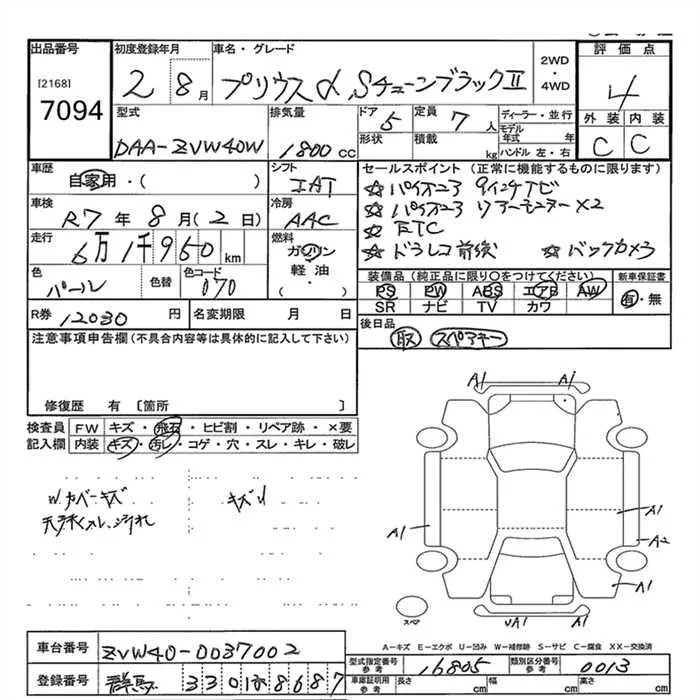 出品番号 初度登録年月 車名・グレード 評価点
[2168] 2 8月 プリウスα Sチューンブラックⅱ 2WD・4WD 4
7094
型式 排気量 ドア 5 定員 7人 ディーラー・並行 外装 内装
DAA-ZVW40W 1800cc 形状 積載 kg モデル年式 年 ハンドル 左・右 C C
車歴 自家用・( ) シフト IAT セールスポイント (正常に機能するものに限ります)
☆パイオニア 9インチナビ
車検 R7年8月(2日) 冷房 AAC ☆パイオニア リアーモニター×2
☆ETC
走行 6万1千950km 燃料 ガソリン 軽油・( ・ ) ☆ドラレコ前後 ☆バックカメラ
色 パール 色替 色コード 070 装備品 (純正品に限り○をつけてください) 新車保証書
PS PW ABS エアB AW 有・無
SR ナビ TV カワ
R券 12030円 名変期限 月 日 後日品
取 スペアキー
注意事項申告欄(不具合内容等は具体的に記入して下さい)
修復歴 有 〔箇所 〕
検査員 FW キズ・飛石・ヒビ割・リペア跡・×要
記入欄 内装 キズ・汚レ・コゲ・穴・スレ・キレ・破レ
W.カバーキズ キズリ
天張スレ、汚れ
A1 A1
A1 A1
A2
A1
スペア UA1
A-キズ E-エクボ U-凹み W-補修跡 S-サビ C-腐食 XX-交換済
車台番号 ZVW40-0037002 型式指定番号 参考 16805 類別区分番号 参考 0013
登録番号 群馬 330 8687 車庫証明記載 参考 長さ cm 幅 cm 高さ cm